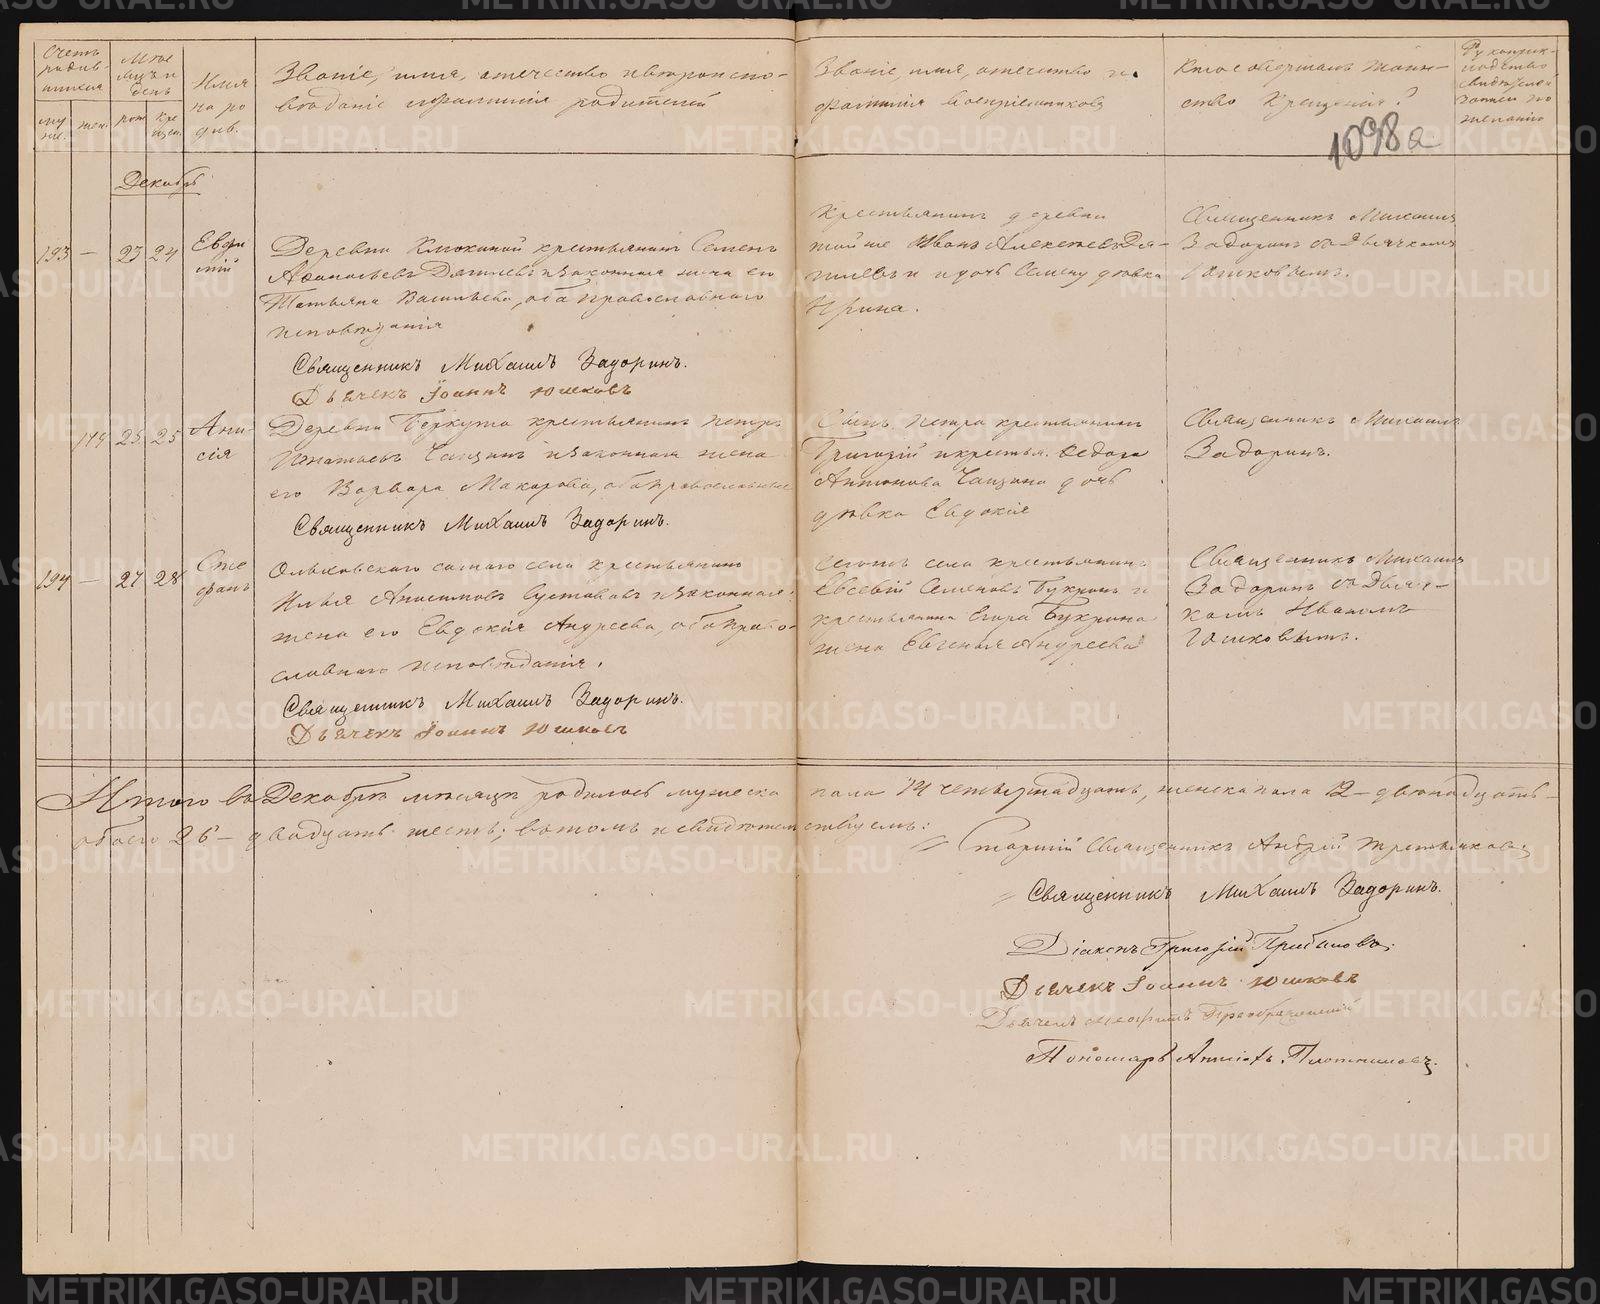 Счетъ родив-шихся
муже.
жен.
Мѣсяцъ и день
рож.
кре щен.
Имя на ро див.
Званіе, имя, отечество и вѣроиспо-
вѣданіе и фамилія родителей
Званіе, имя, отечество и
фамилія воспріемниковъ
Кто совершалъ таин-
ство Крещенія?
Рукоприк-
ладство
свидѣтелей
записи по
желанію
1098а
Декабрь
193 — 23 24 Евфи
мій
Деревни крестьянинъ Семенъ
и законная жена его
Татьяна Васильева, оба православнаго
исповѣданія
Священникъ Михаилъ Задоринъ.
Дьячекъ Іоаннъ Юшковъ
Крестьянинъ деревни
той же Иванъ Алексѣевъ
и дочь Семену дѣвка
Ирина.
Священникъ Михаилъ
Задоринъ съ Дьячкомъ
Юшковымъ.
179 25 25 Ани
сія
Деревни Беркута крестьянинъ Петръ
Игнатьевъ и законная жена
его Варвара Макарова, оба православные
Священникъ Михаилъ Задоринъ.
Сынъ Петра крестьянинъ
Григорій и крестья. Ѳедора
Антонова дочь
дѣвка Евдокія
Священникъ Михаилъ
Задоринъ.
194 — 27 28 Сте
фанъ
Ольховскаго самаго села крестьянинъ
Илья Анисимовъ и законная
жена его Евдокія Андреева, оба право-
славнаго исповѣданія.
Священникъ Михаилъ Задоринъ.
Дьячекъ Іоаннъ Юшковъ
Сегожъ села крестьянинъ
Евсевій Семеновъ Букринъ и
крестьянина Егора Букрина
жена Евгенья Андреева
Священникъ Михаилъ
Задоринъ съ Дьяч-
комъ Иваномъ
Юшковымъ.
Итого въ Декабрѣ мѣсяцѣ родилось мужеска пола 14 четырнадцать, женска пола 12 — двѣнадцать —
обоего 26 — двадцать шесть; въ томъ и свидѣтельствуемъ:
Старшій Священникъ Андрей Третьяковъ
Священникъ Михаилъ Задоринъ.
Діаконъ Григорій Прибыловъ.
Дьячекъ Іоаннъ Юшковъ
Дьячекъ Преображенскій
Пономарь Плотниковъ.
METRIKI.GASO-URAL.RU